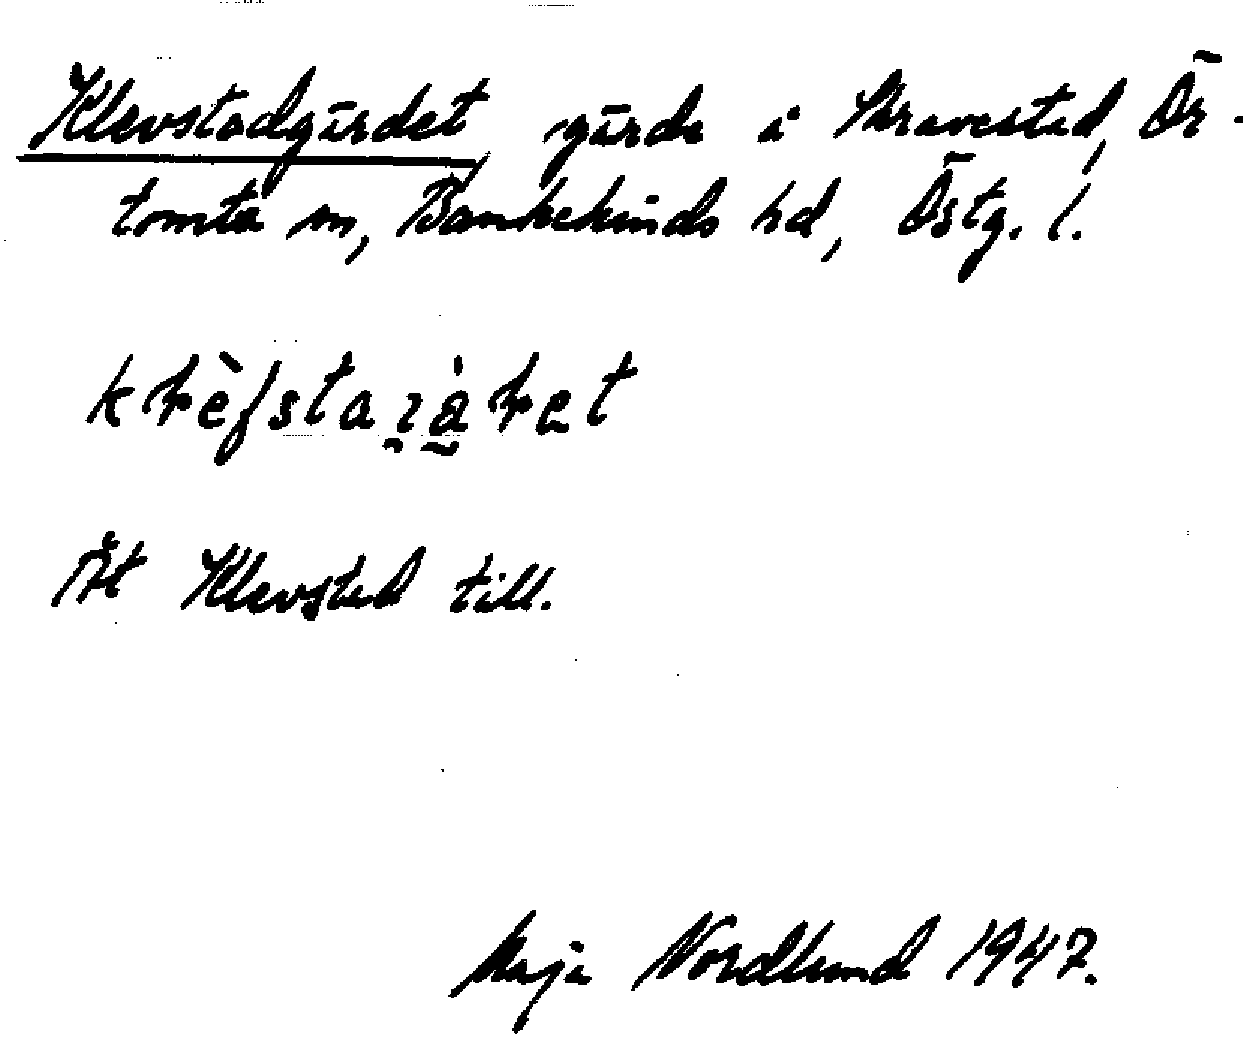 Klevstadgärdet gärde i Skravestad, Ör-
tomta sn, Bankekinds hd, Östg. l.
Åt Klevstad till.
Maja Nordlund 1947.